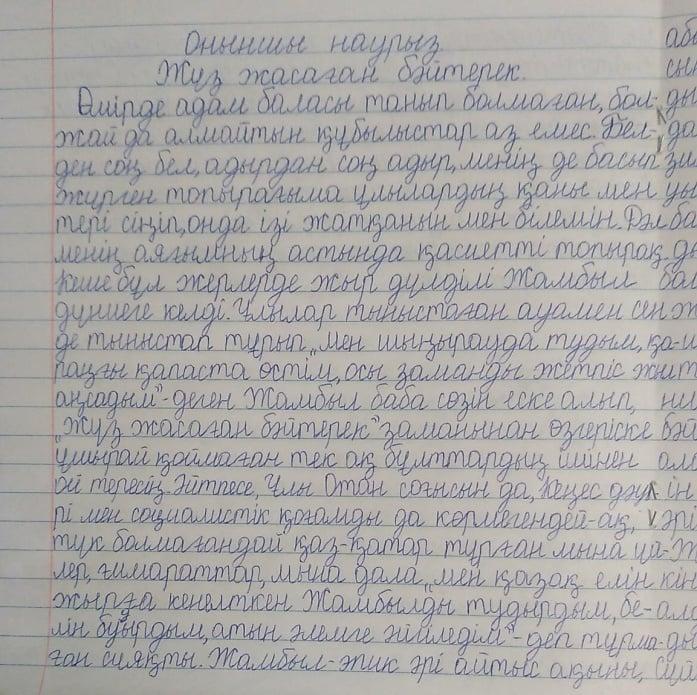 Оныншы наурыз
Жүз жасаған бәйтерек.
Өмірде адам баласы танып болмаған, бол-
жай да алмайтын құбылыстар аз емес. Бел-
ден соң бел, адырдан соң адыр, менің де басып
жүрген топырағыма ұлылардың қаны мен
тері сіңіп, онда ізі жатқанын мен білемін. Дәл
менің аяғымның астында қасиетті топырақ.
Кеше бұл жерлерде жыр дүлділі Жамбыл
дүниеге келді. Ұлылар тыныстаған ауамен сен
де тыныстап тұрып „мен шыңырауда тудым, қа-
раңғы қапаста өстім, осы заманды жетпіс жыл
аңсадым"-деген Жамбыл баба сөзін еске алып,
„Жүз жасаған бәйтерек" заманынан өзгеріске
ұшырай қоймаған тек ақ бұлттардың ішінен
ой тересің. Әйтпесе, Ұлы Отан соғысын да, Кеңес дәу-
рі мен социалистік қоғамды да көрмегендей-ақ,
түк болмағандай қаз-қатар тұрған мына үй-
лер, ғимараттар, мына дала „мен қазақ елін
жырға кенелткен Жамбылды тудырдым, бе-
лін буырдым, атын әлемге әйгіледім"- деп тұрма-
ған сияқты. Жамбыл-эпик әрі айтыс ақыны,